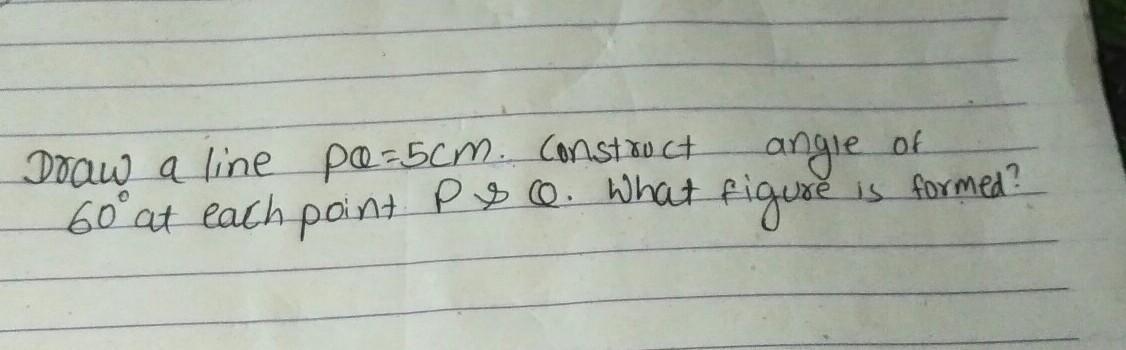 Draw a line PQ=5cm. Construct angle of
60° at each point P & Q. What figure is formed?